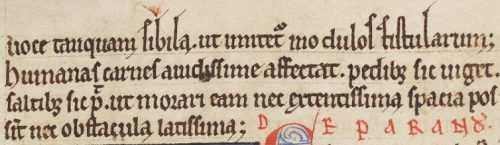 uoce tanquam sibila. ut imitet᷑ modulos fistularum;
humanas carnes auidissime affectat. pedibꝫ sic uiget
saltibꝫ sic p̄. ut morari eam nec extentissima spacia pos
sīt nec obstacula latissima; DE PARAND᷑.